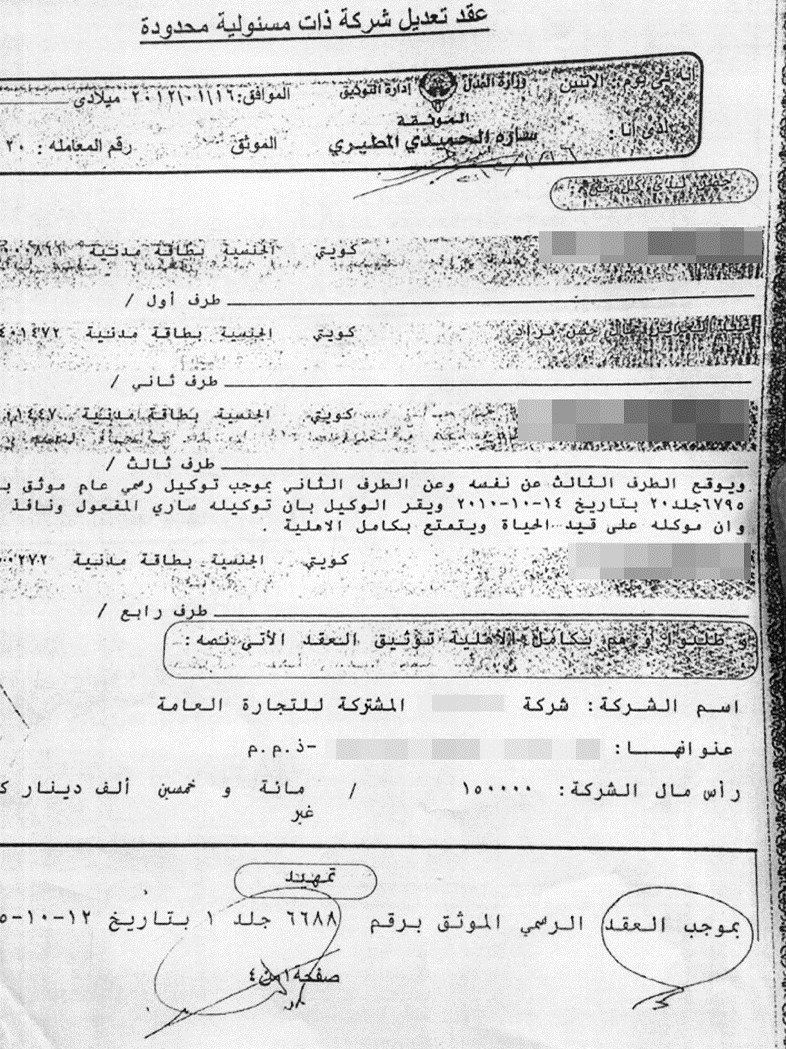 عقد تعديل شركة ذات مسئولية محدودة
إنه في يوم: الاثنين وزارة العدل إدارة التوثيق الموافق: ٢٠١٢/٠١/١٦ ميلادي
لدى أنا: الموثقة
ساره الحميدي المطيري الموثق رقم المعامله: ٢٠
حضر لدى كل من:
كويتي الجنسية بطاقة مدنية ٠٠٠٨٦١
طرف أول /
كويتي الجنسية بطاقة مدنية ٤٠١٤٧٢
طرف ثاني /
كويتي الجنسية بطاقة مدنية ١١٤٤٧
طرف ثالث /
ويوقع الطرف الثالث عن نفسه وعن الطرف الثاني بموجب توكيل رسمي عام موثق
٦٧٩٥جلد٢٠ بتاريخ ١٤-١٠-٢٠١٠ ويقر الوكيل بان توكيله ساري المفعول ونافذ
وان موكله على قيد الحياة ويتمتع بكامل الاهلية
كويتي الجنسية بطاقة مدنية ٠٠٢٧٢
طرف رابع /
و طلبوا و هم بكامل الأهلية توثيق العقد الأتى نصه:
اسم الشركة: شركة المشتركة للتجارة العامة
عنوانهـــا: -ذ.م.م
رأس مال الشركة: ١٥٠٠٠٠ / مائة و خمسين ألف دينار
غير
تمهيد
بموجب العقد الرسمي الموثق برقم ٦٦٨٨ جلد ١ بتاريخ ١٢-١٠-
صفحة ١ من ٤